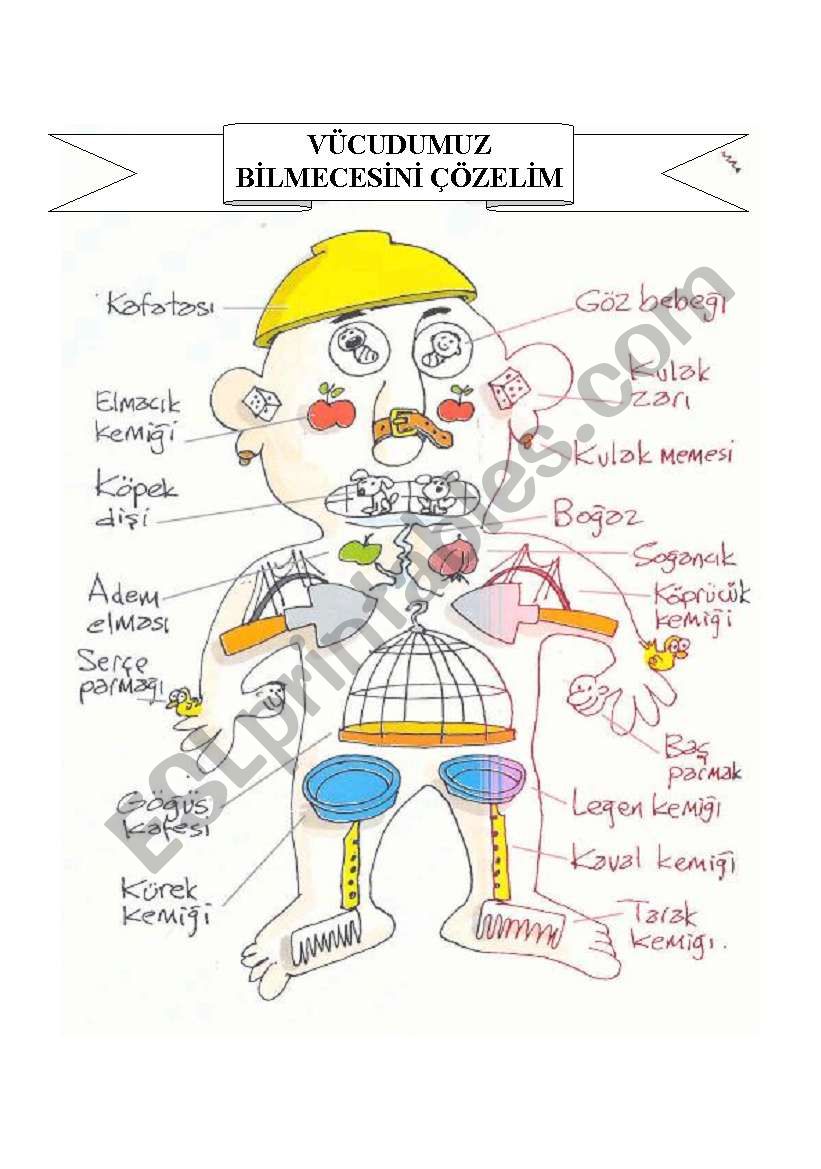 VÜCUDUMUZ
BİLMECESİNİ ÇÖZELİM
Kafatası
Göz bebeği
Kulak
zarı
Elmacık
kemiği
Kulak memesi
Köpek
dişi
Boğaz
Soğancık
Adem
elması
Köprücük
kemiği
Serçe
parmağı
Baş
parmak
Göğüs
kafesi
Leğen kemiği
Kaval kemiği
Kürek
kemiği
Tarak
kemiği.
ESLprintables.com